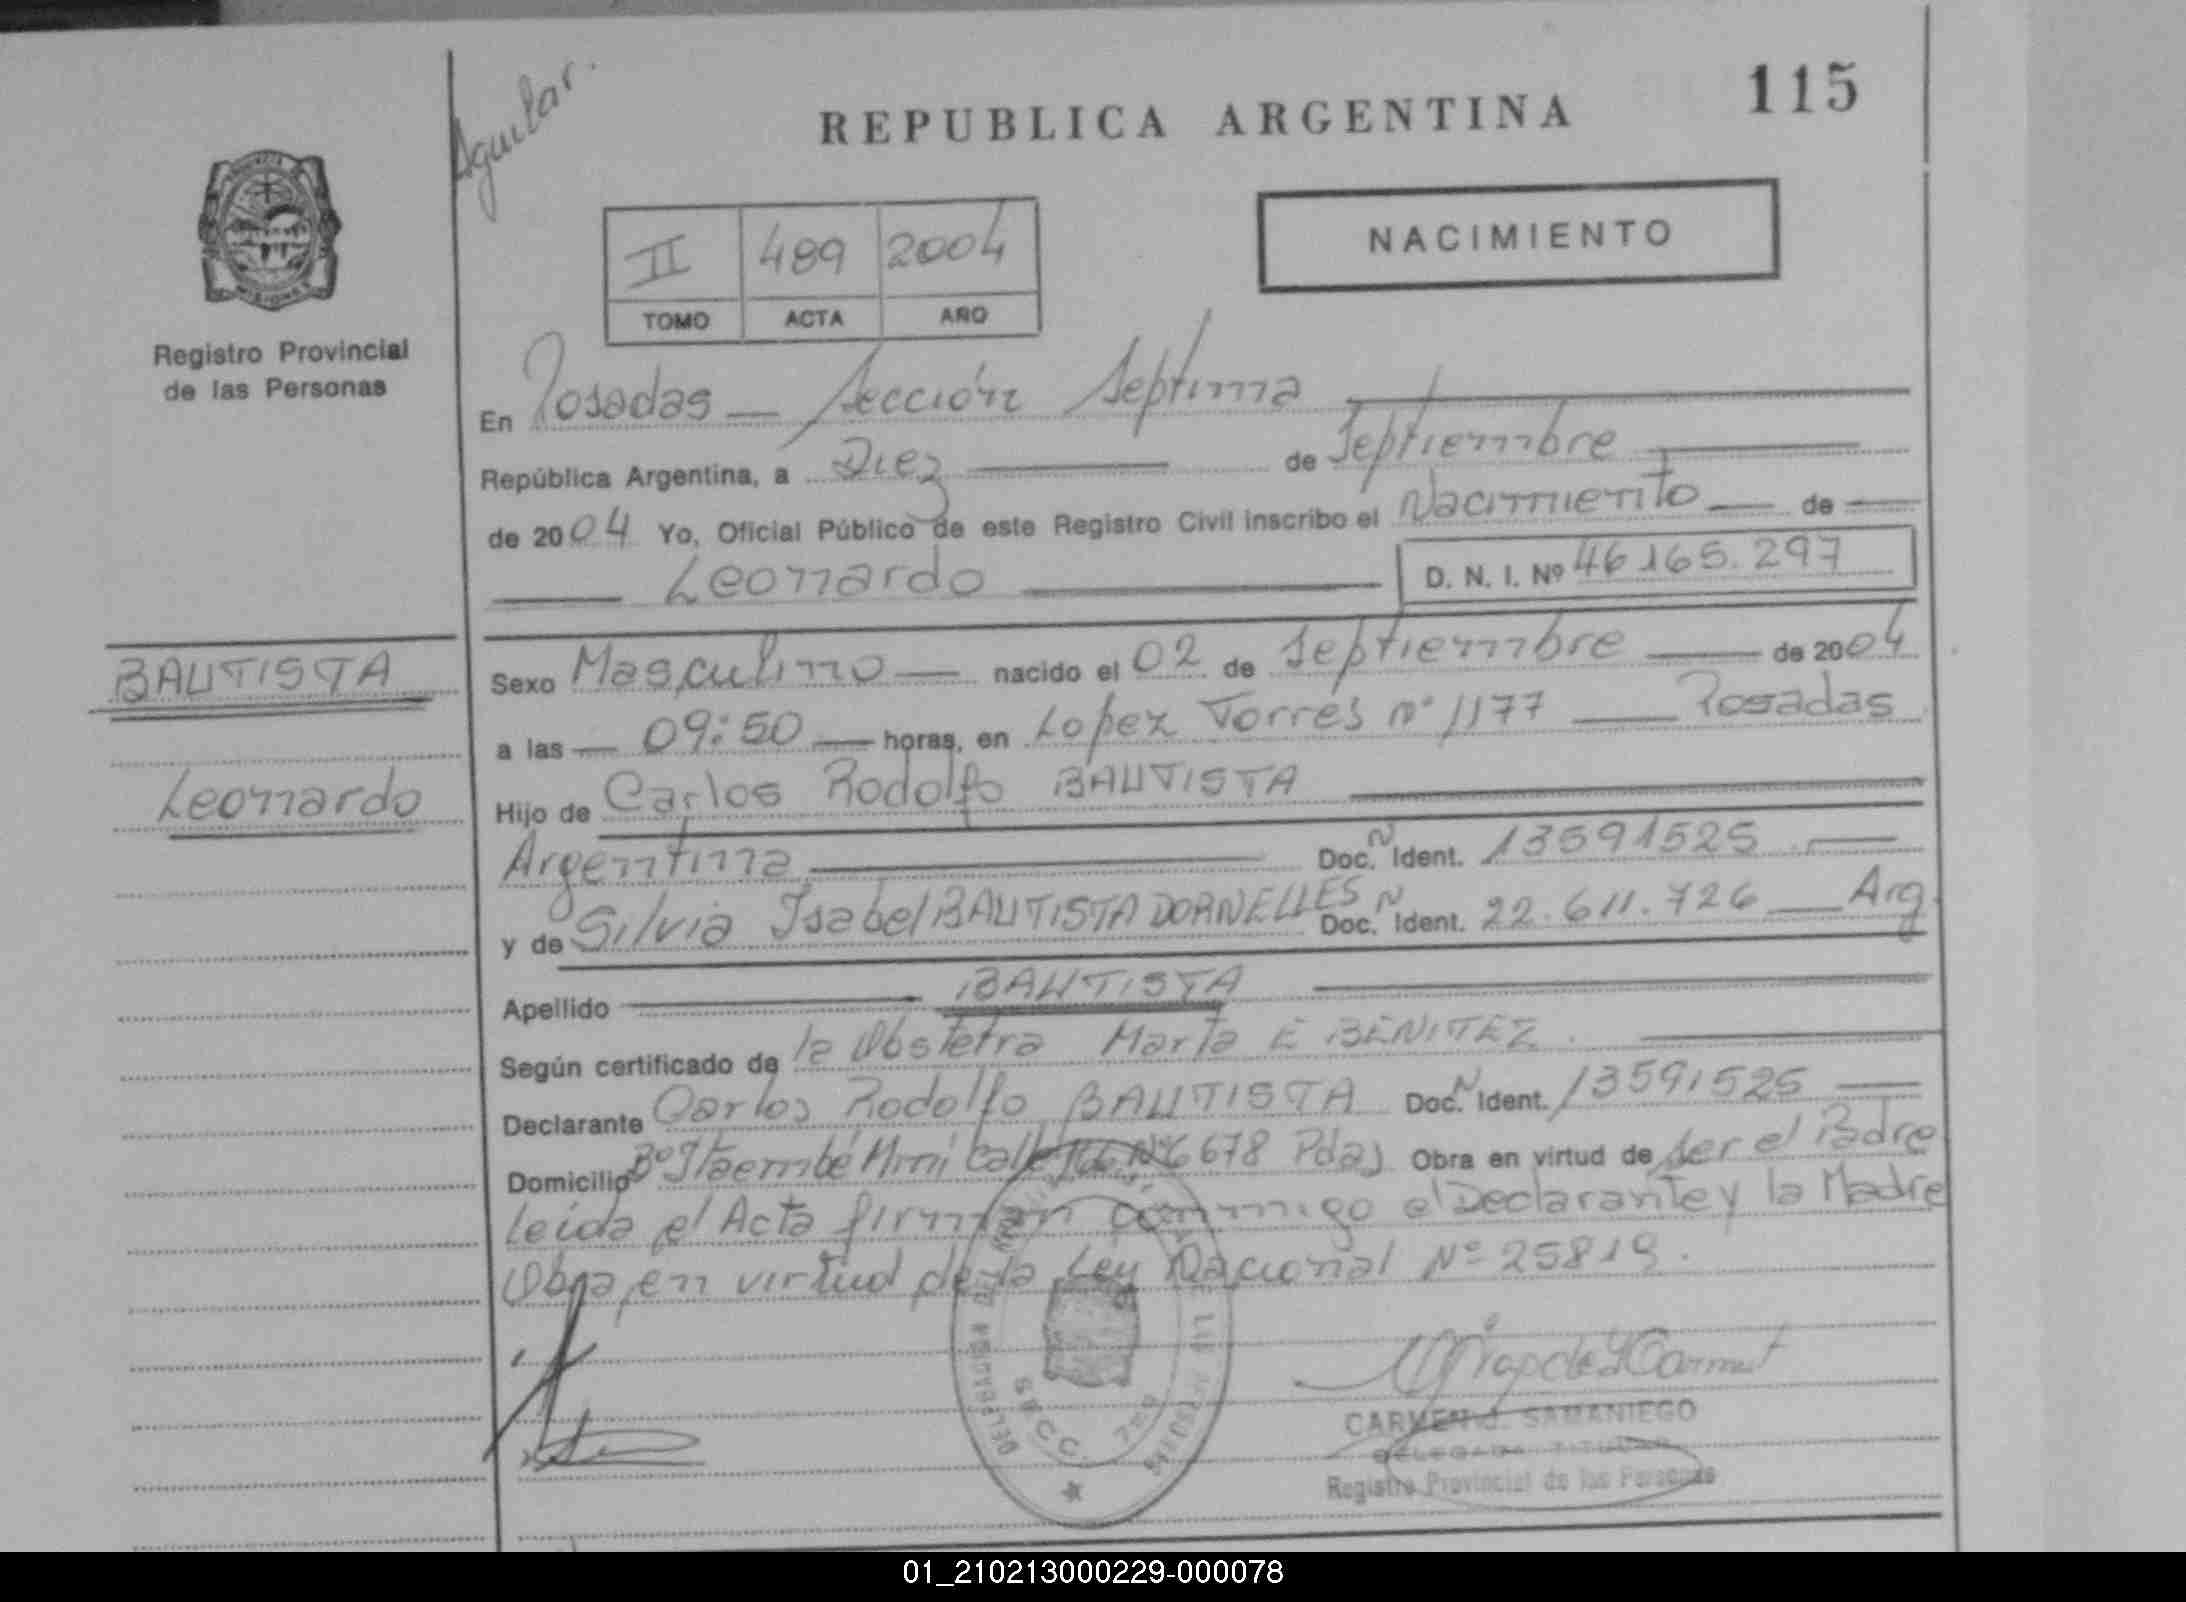 Aguilar.
REPUBLICA ARGENTINA
115
PROVINCIA
MISIONES
Registro Provincial
de las Personas
II 489 2004
TOMO ACTA AÑO
NACIMIENTO
En Posadas — Sección Septima
República Argentina, a Diez de Septiembre
de 2004 Yo, Oficial Público de este Registro Civil inscribo el Nacimiento — de —
Leonardo D. N. I. Nº 46165.297
BAUTISTA
Leonardo
Sexo Masculino — nacido el 02 de Septiembre — de 2004
a las — 09:50 — horas, en Lopez Torres nº 1177 — Posadas
Hijo de Carlos Rodolfo BAUTISTA
Argentina Doc. N Ident. 13591525
y de Silvia Isabel BAUTISTA DORNELLES Doc. N Ident. 22.611.726 — Arg.
Apellido BAUTISTA
Según certificado de la Obstetra Marta E BENITEZ.
Declarante Carlos Rodolfo BAUTISTA Doc. N Ident. 13591525
Domicilio Bº Itaembé Mini Calle Nº 6678 Pdas Obra en virtud de ser el Padre
leida el Acta firman conmigo el Declarante y la Madre
Obra en virtud de la Ley Nacional Nº 25819.
SECC. 7ma
CARMEN J. SAMANIEGO
DELEGADA TITULAR
Registro Provincial de las Personas
01_210213000229-000078